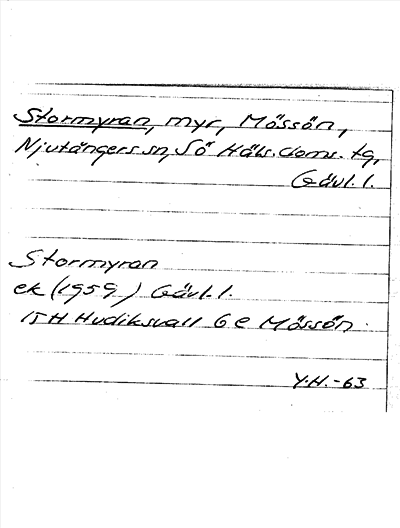 Stormyran, myr, Mössön,
Njutångers sn, Sö Häls. doms. tg,
Gävl. l.
Stormyran
ek (1959) Gävl. l.
15H Hudiksvall 6 e Mössön.
Y.H.-63